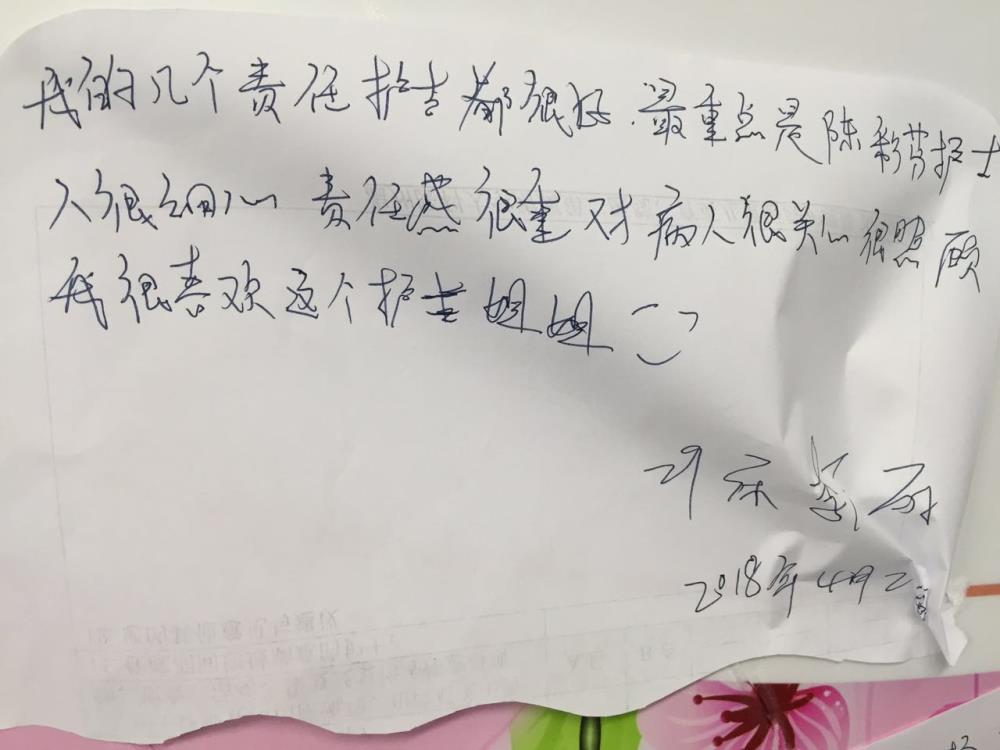 我的几个责任护士都很好.最重点是陈彩芬护士
人很细心 责任感很重 对病人很关心很照顾
我很喜欢这个护士姐姐
29床
2018年4月2